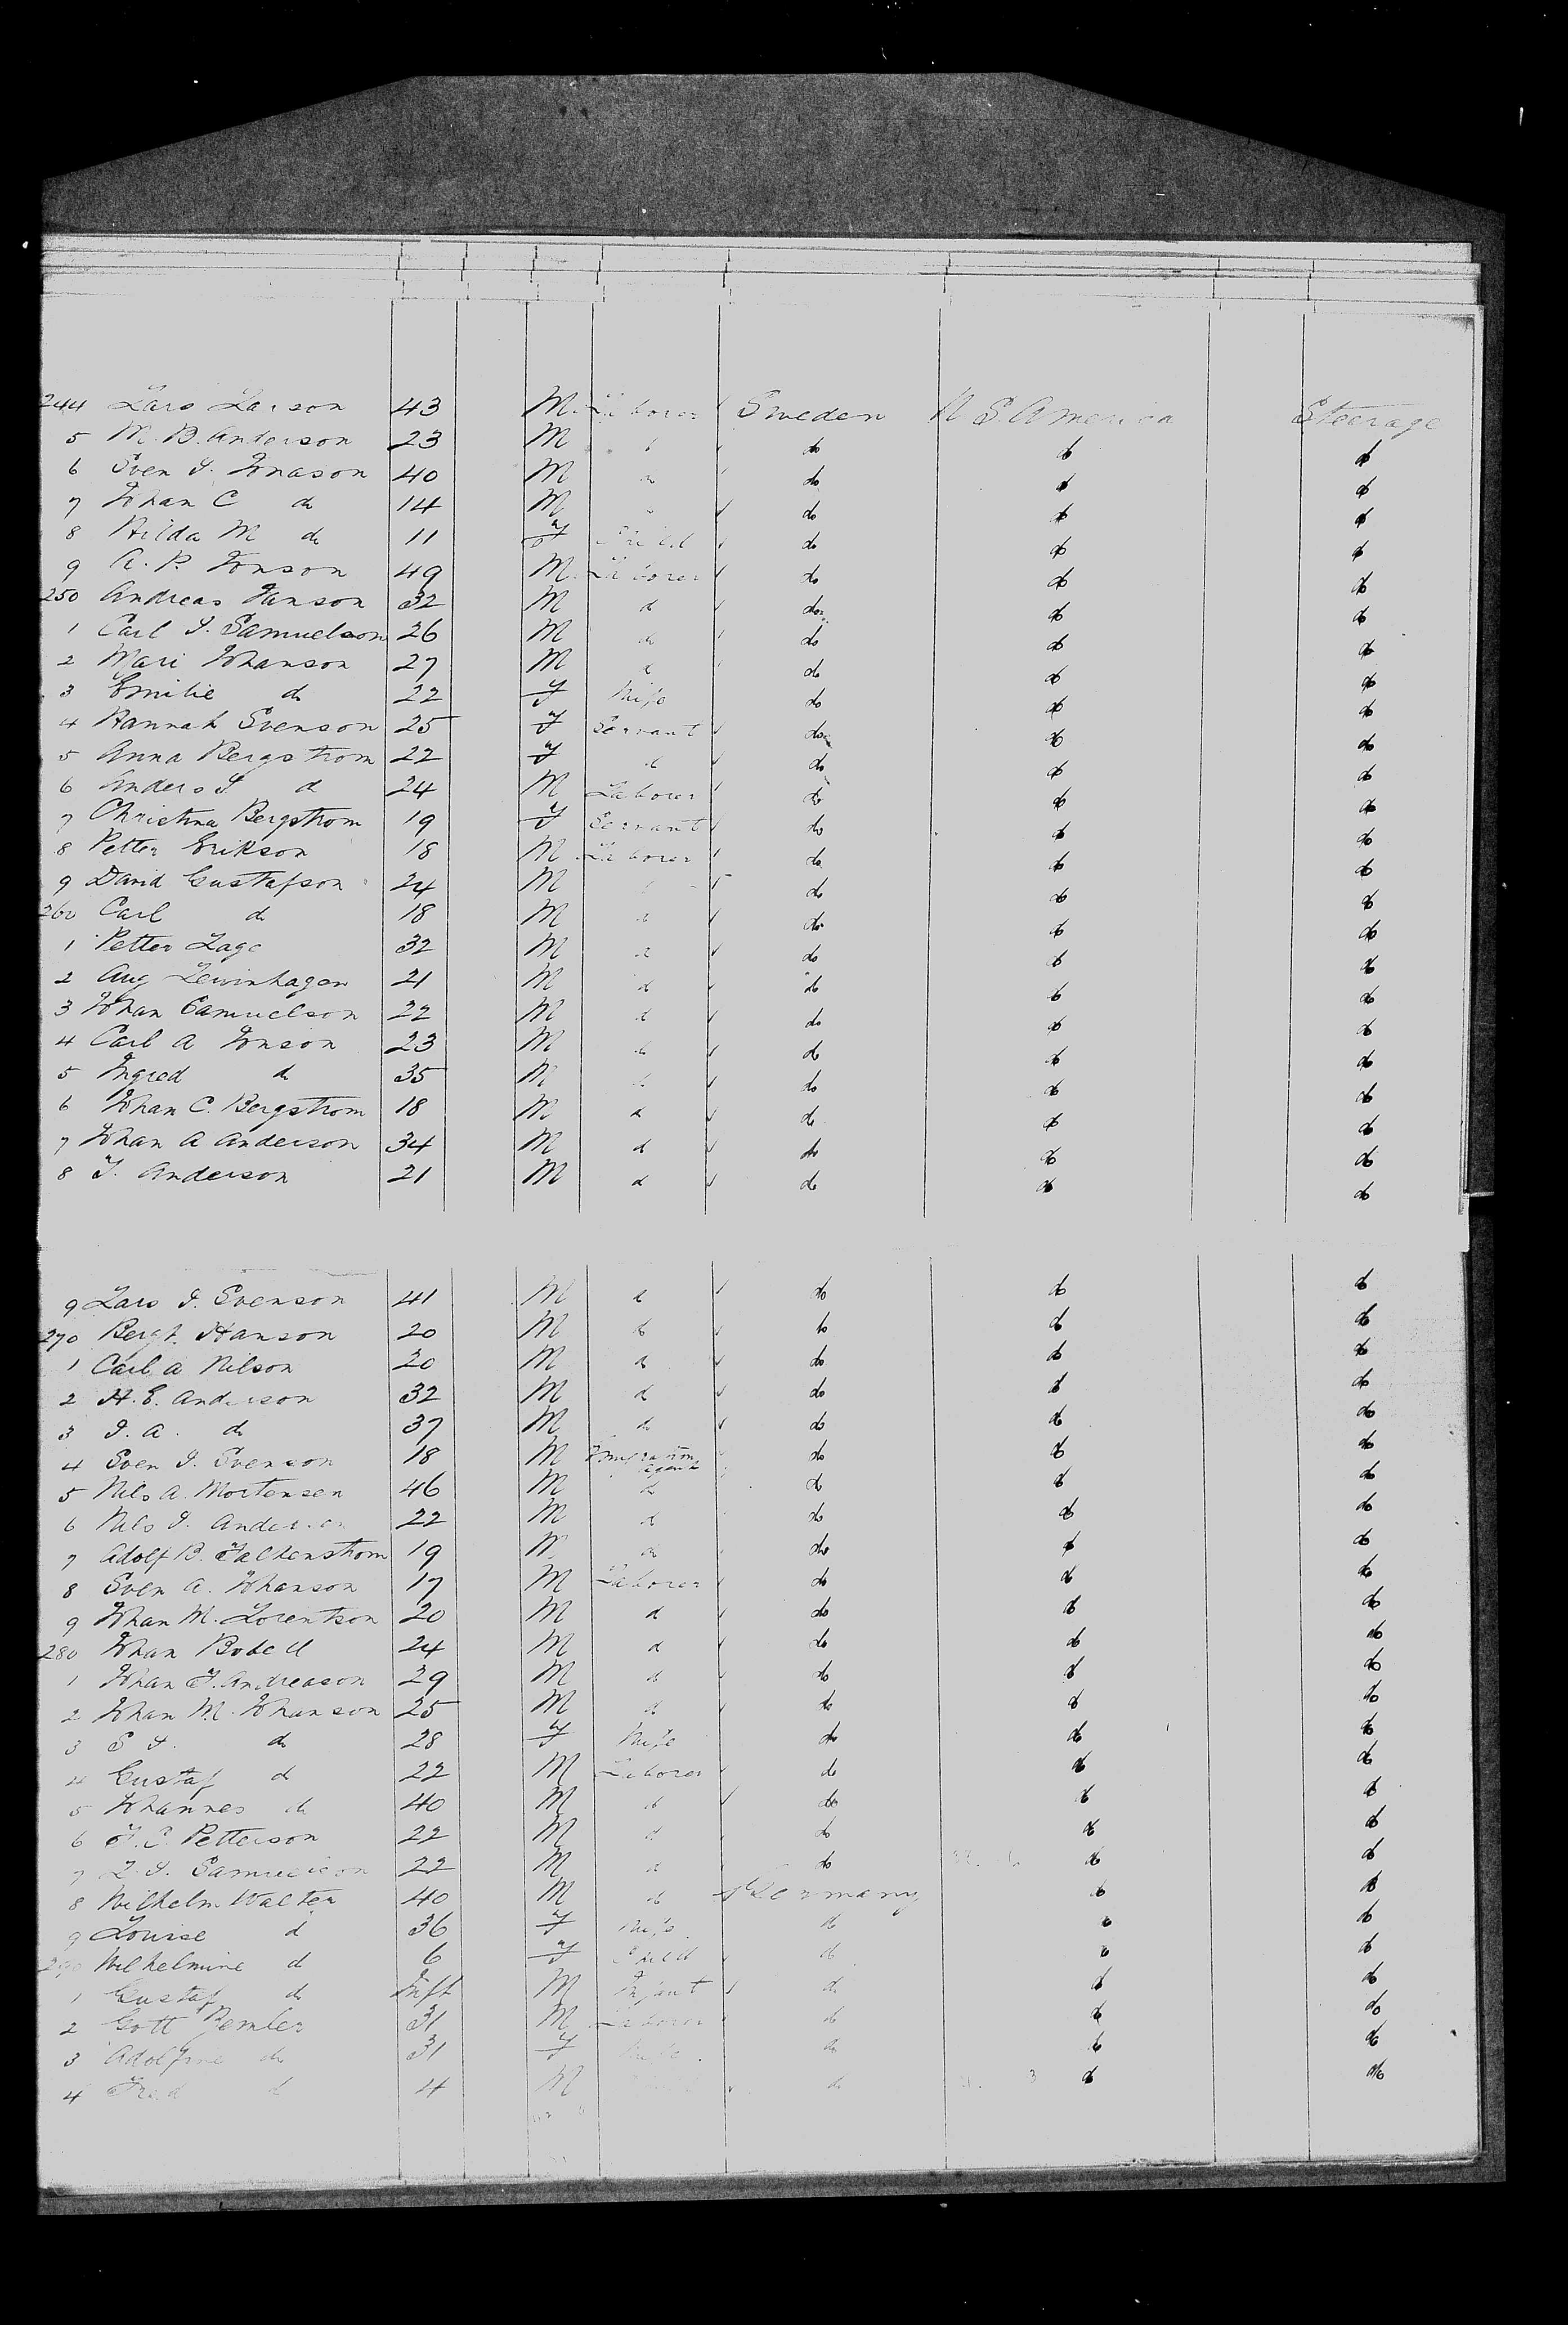 244 Lars Larson 43 M. Laborer Sweden U S. America Steerage
5 M. B. Anderson 23 M d do do do
6 Sven J. Jonason 40 M do do do do
7 Johan C do 14 M " do do do
8 Hilda M do 11 F Child do do do
9 A. P. Jonson 49 M. Laborer do do do
250 Andreas Janson 32 M d do do do
1 Carl J. Samuelson 26 M do do do do
2 Mari Johanson 27 M d do do do
3 Emilie do 22 F Wife do do do
4 Hannah Svenson 25 F Servant do do do
5 Anna Bergstrom 22 F d do do do
6 Anders J. d 24 M Laborer do do do
7 Christina Bergstrom 19 F Servant do do do
8 Petter Erikson 18 M Laborer do do do
9 David Gustafson 24 M do do do
260 Carl do 18 M d do do do
1 Petter Lage 32 M d do do do
2 Aug Lewinhagen 21 M d do do do
3 Johan Samuelson 22 M d do do do
4 Carl A Jonson 23 M do do do do
5 Ingred do 35 M do do do do
6 Johan C. Bergstrom 18 M d do do do
7 Johan A Anderson 34 M d do do do
8 J. Anderson 21 M d do do do
9 Lars J. Svenson 41 M d do do do
270 Bengt. Hanson 20 M do do do do
1 Carl A Nilson 20 M d do do do
2 H. E. Anderson 32 M d do do do
3 J. A. do 37 M do do do do
4 Sven J. Svenson 18 M do do do
5 Nils A. Mortensen 46 M d do do do
6 Nils J. Anderson 22 M d do do do
7 Adolf B. Falkenstrom 19 M do do do do
8 Sven A. Johanson 17 M Laborer do do do
9 Johan M. Lorentson 20 M d do do do
280 Johan Bobell 24 M d do do do
1 Johan F. Andreason 29 M do do do do
2 Johan M. Johanson 25 M d do do do
3 S J. do 28 F Wife do do do
4 Gustaf d 22 M Laborer do do do
5 Johannes do 40 M do do do do
6 F. C. Petterson 22 M d do do do
7 L. J. Samuelson 22 M d do do do
8 Wilhelm Walter 40 M do Germany do do
9 Louise d 36 F Wife do do do
290 Wilhelmine d 6 F Child do do do
1 Gustaf do Inft M Infant do do do
2 Gott Zemler 31 M Laborer do do do
3 Adolfine do 31 F Wife do do do
4 Fred d 4 M do do do